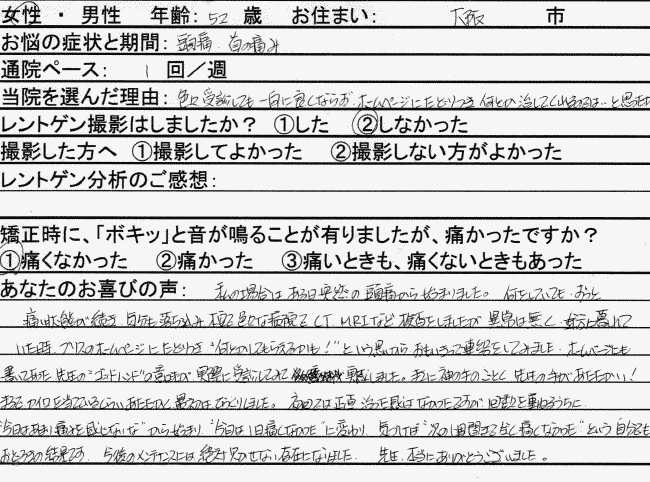 女性 ・ 男性 年齢: 52 歳 お住まい: 大阪 市
お悩の症状と期間: 頭痛 首の痛み
通院ペース: 1 回/週
当院を選んだ理由: 色々受診しても一向に良くならず、ホームページにたどりつき 何とか治してくれるのでは…と思った
レントゲン撮影はしましたか? ①した ②しなかった
撮影した方へ ①撮影してよかった ②撮影しない方がよかった
レントゲン分析のご感想:
矯正時に、「ボキッ」と音が鳴ることが有りましたが、痛かったですか?
①痛くなかった ②痛かった ③痛いときも、痛くないときもあった
あなたのお喜びの声: 私の場合はある日突然の頭痛から始まりました。何をしていても、ずっと
痛い状態が続き、自分も落ち込み 色々な病院で CT MRIなど検査をしましたが 異常は無く
いた時、ホームページにたどりつき "何とかしてもらえるかも!" という思いから おもいきって連絡をしてみました。ホームページにも
書いてあった 先生の"ゴッドハンド" 実際に受診してみて 実感しました。まさに神の手のごとく 先生の手があたたかい!
まるでアイロンを当てているくらいあたたかく 最初はびっくりしました。 回数を重ねるうちに
"今日はあまり痛みを感じないな" から始まり "今日は1日痛くなかった" に変わり、気づけば "次の1週間まで全く痛くなかった" という自分でも
おどろきの結果です。今後のメンテナンスには絶対欠かせない存在になりました。 先生、本当にありがとうございました。